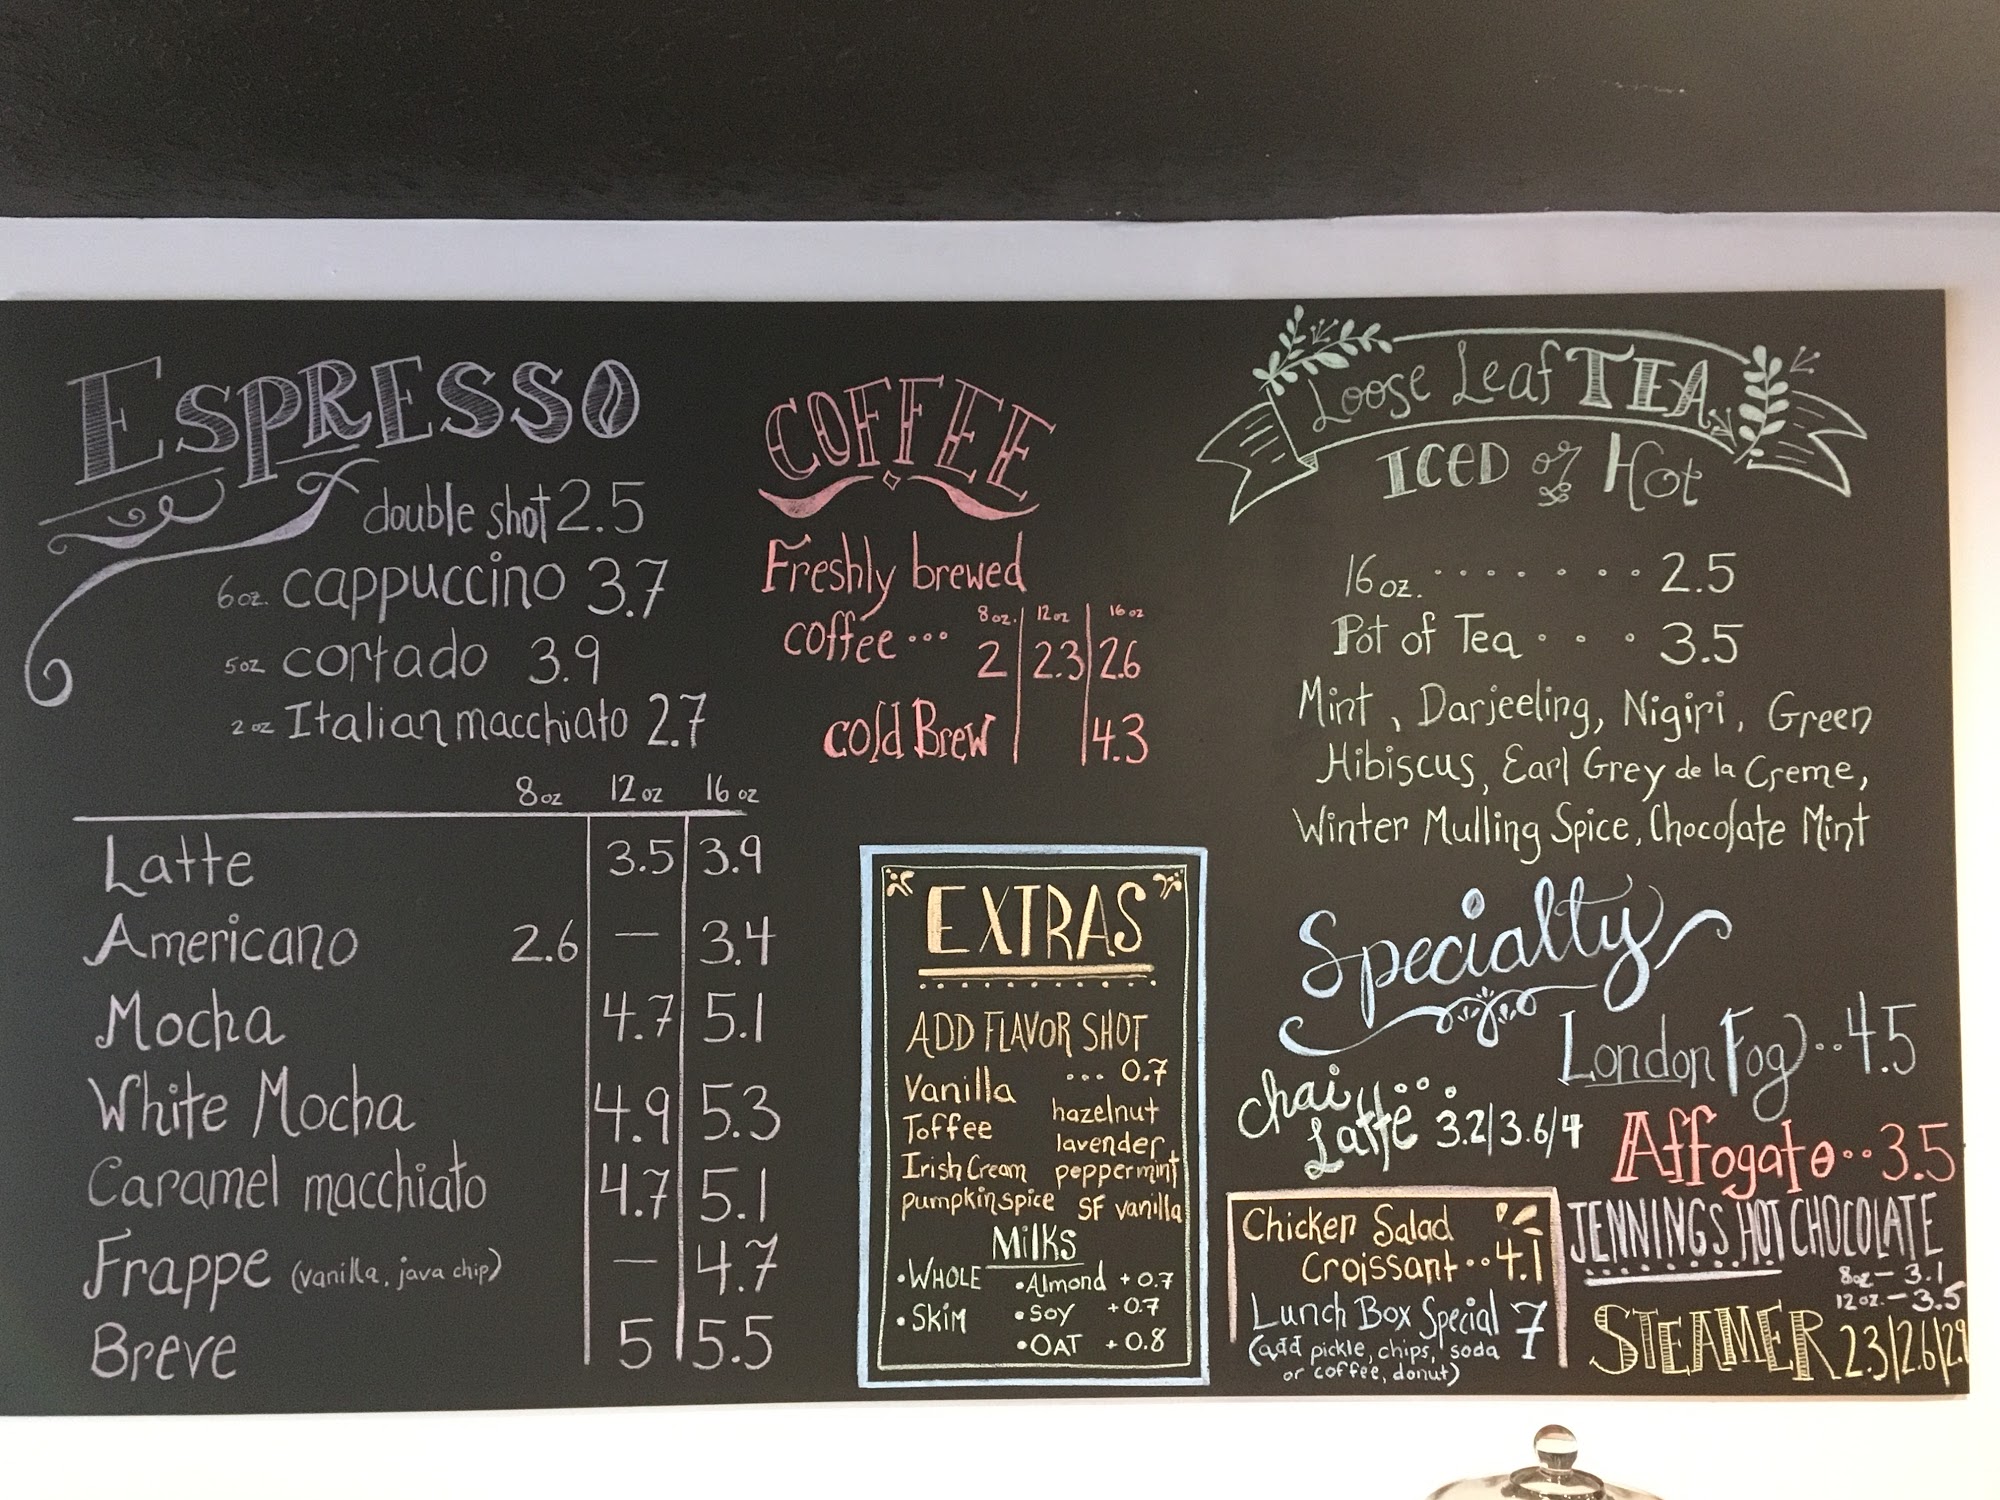 ESPRESSO
double shot 2.5
6oz. cappuccino 3.7
5oz cortado 3.9
2oz Italian macchiato 2.7
8oz 12oz 16oz
Latte 3.5 3.9
Americano 2.6 — 3.4
Mocha 4.7 5.1
White Mocha 4.9 5.3
Caramel macchiato 4.7 5.1
Frappe (vanilla, java chip) — 4.7
Breve 5 5.5
COFFEE
Freshly brewed
8oz. 12oz 16oz
coffee... 2 2.3 2.6
cold Brew 4.3
EXTRAS
ADD FLAVOR SHOT
... 0.7
Vanilla
hazelnut
Toffee
lavender
Irish Cream peppermint
pumpkin spice SF vanilla
Milks
•WHOLE •Almond +0.7
•SKIM •Soy +0.7
•OAT +0.8
Loose Leaf TEA
ICED or Hot
16oz. . . . . . . . 2.5
Pot of Tea . . . 3.5
Mint, Darjeeling, Nigiri, Green
Hibiscus, Earl Grey de la Creme,
Winter Mulling Spice, Chocolate Mint
Specialty
London Fog..4.5
Chai
Latte 3.2/3.6/4
Affogato..3.5
JENNINGS HOT CHOCOLATE
8oz — 3.1
12oz. — 3.5
STEAMER 2.3/2.6/2.9
Chicken Salad
Croissant..4.1
Lunch Box Special 7
(add pickle, chips, soda
or coffee, donut)